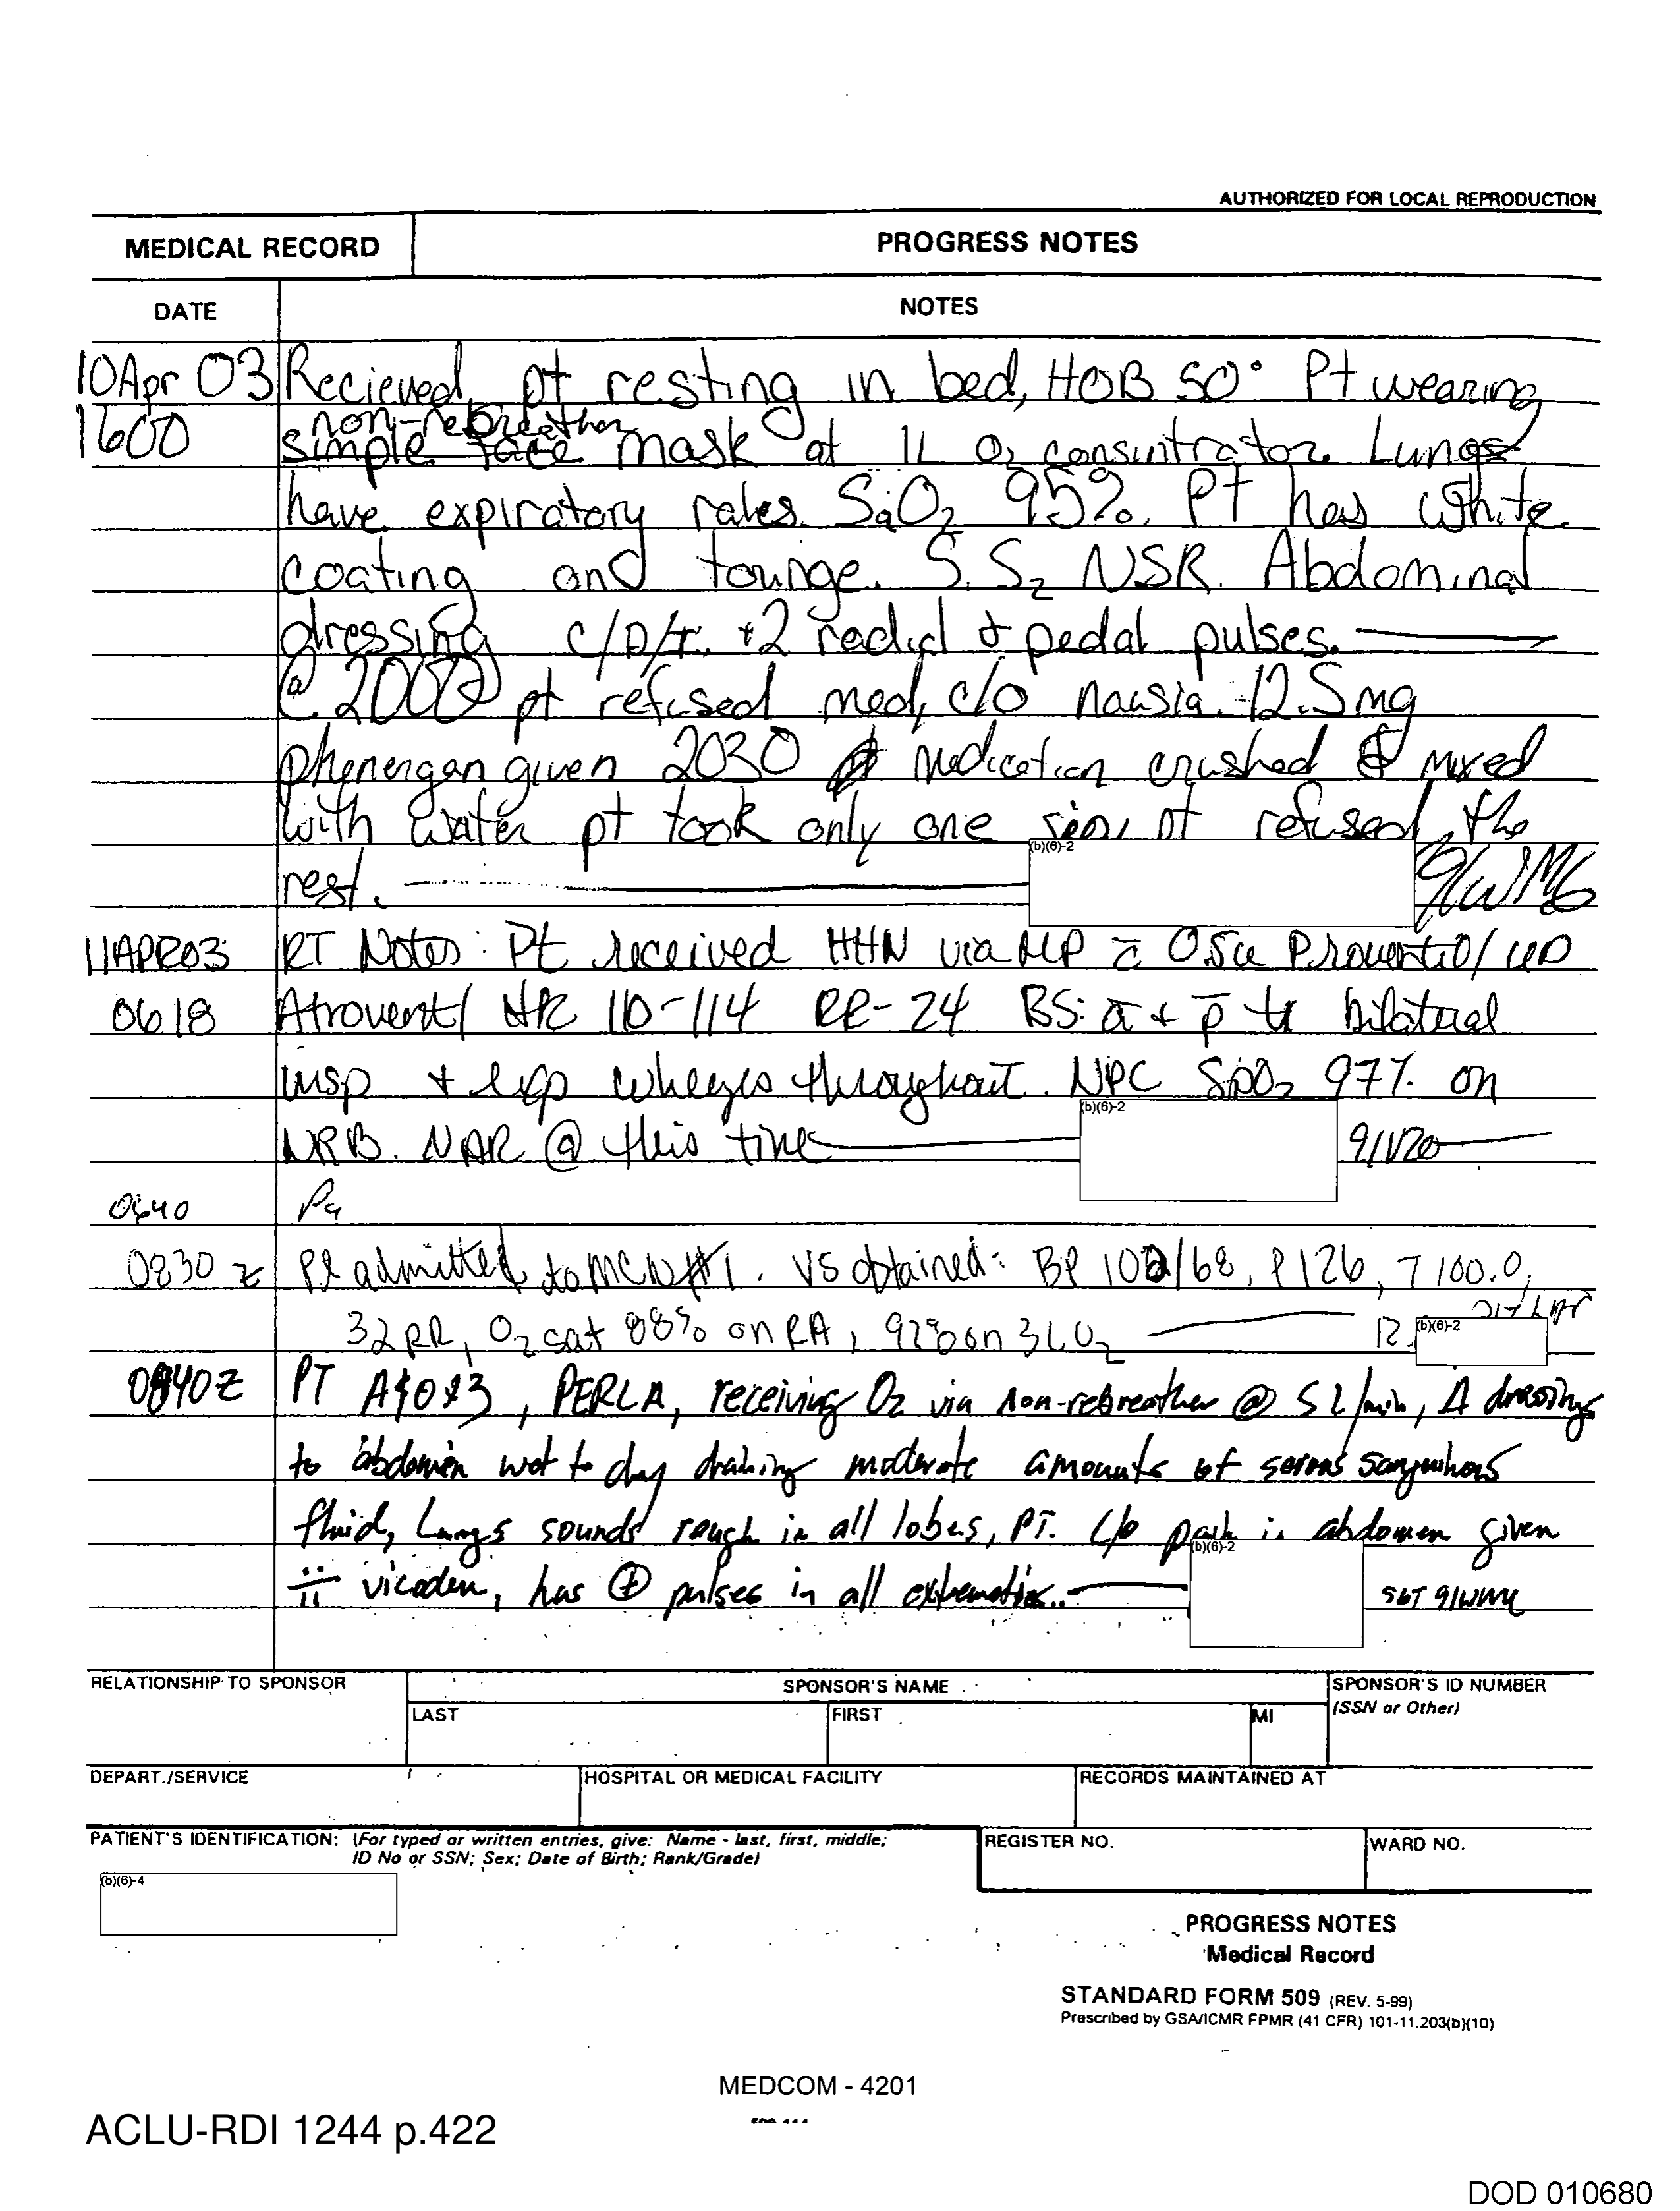 AUTHORIZED FOR LOCAL REPRODUCTION
MEDICAL RECORD
PROGRESS NOTES
DATE
NOTES
10 Apr 03 Recieved pt resting in bed, HOB 50° Pt wearing
non-rebreather
1600 simple face mask at 1L O2 consintrator. Lungs
have expiratory rales. SaO2 95%. Pt has white
coating ond tounge. S1S2 NSR. Abdominal
dressing c/D/I. +2 radial & pedal pulses.
@ 2000 pt refused med, c/o nausia. 12.5 mg
phenergan given 2030 medication crushed & mixed
with water pt took only one sip, pt refused the
rest. (b)(6)-2 91WM6
11APR03 RT Notes: Pt received HHN via MP c̄ 0.5cc Proventil/UD
0618 Atrovent/ HR 110-114 RR-24 BS: ā + p̄ tx bilateral
insp + exp wheezes throughout. NPC SpO2 97% on
NRB. NAR @ this time (b)(6)-2 91V20
0640 Pt
0830 z Pt admitted to MCW#1. VS obtained: BP 102/68, P126, T100.0,
32RR, O2 sat 88% on RA, 92% on 3L O2 (b)(6)-2
0840z PT A&Ox3, PERLA, receiving O2 via non-rebreather @ 5 L/min, Δ dressing
to abdomen wet to dry draining moderate amounts of serous sanguinous
fluid, Lungs sounds rough in all lobes, PT. c/o pain in abdomen given
ii vicoden, has ⊕ pulses in all extremeties. (b)(6)-2 SGT 91WM6
RELATIONSHIP TO SPONSOR
SPONSOR'S NAME
SPONSOR'S ID NUMBER
(SSN or Other)
LAST
FIRST
MI
DEPART./SERVICE
HOSPITAL OR MEDICAL FACILITY
RECORDS MAINTAINED AT
PATIENT'S IDENTIFICATION: (For typed or written entries, give: Name - last, first, middle;
ID No or SSN; Sex; Date of Birth; Rank/Grade)
REGISTER NO.
WARD NO.
(b)(6)-4
PROGRESS NOTES
Medical Record
STANDARD FORM 509 (REV. 5-99)
Prescribed by GSA/ICMR FPMR (41 CFR) 101-11.203(b)(10)
MEDCOM - 4201
ACLU-RDI 1244 p.422
DOD 010680